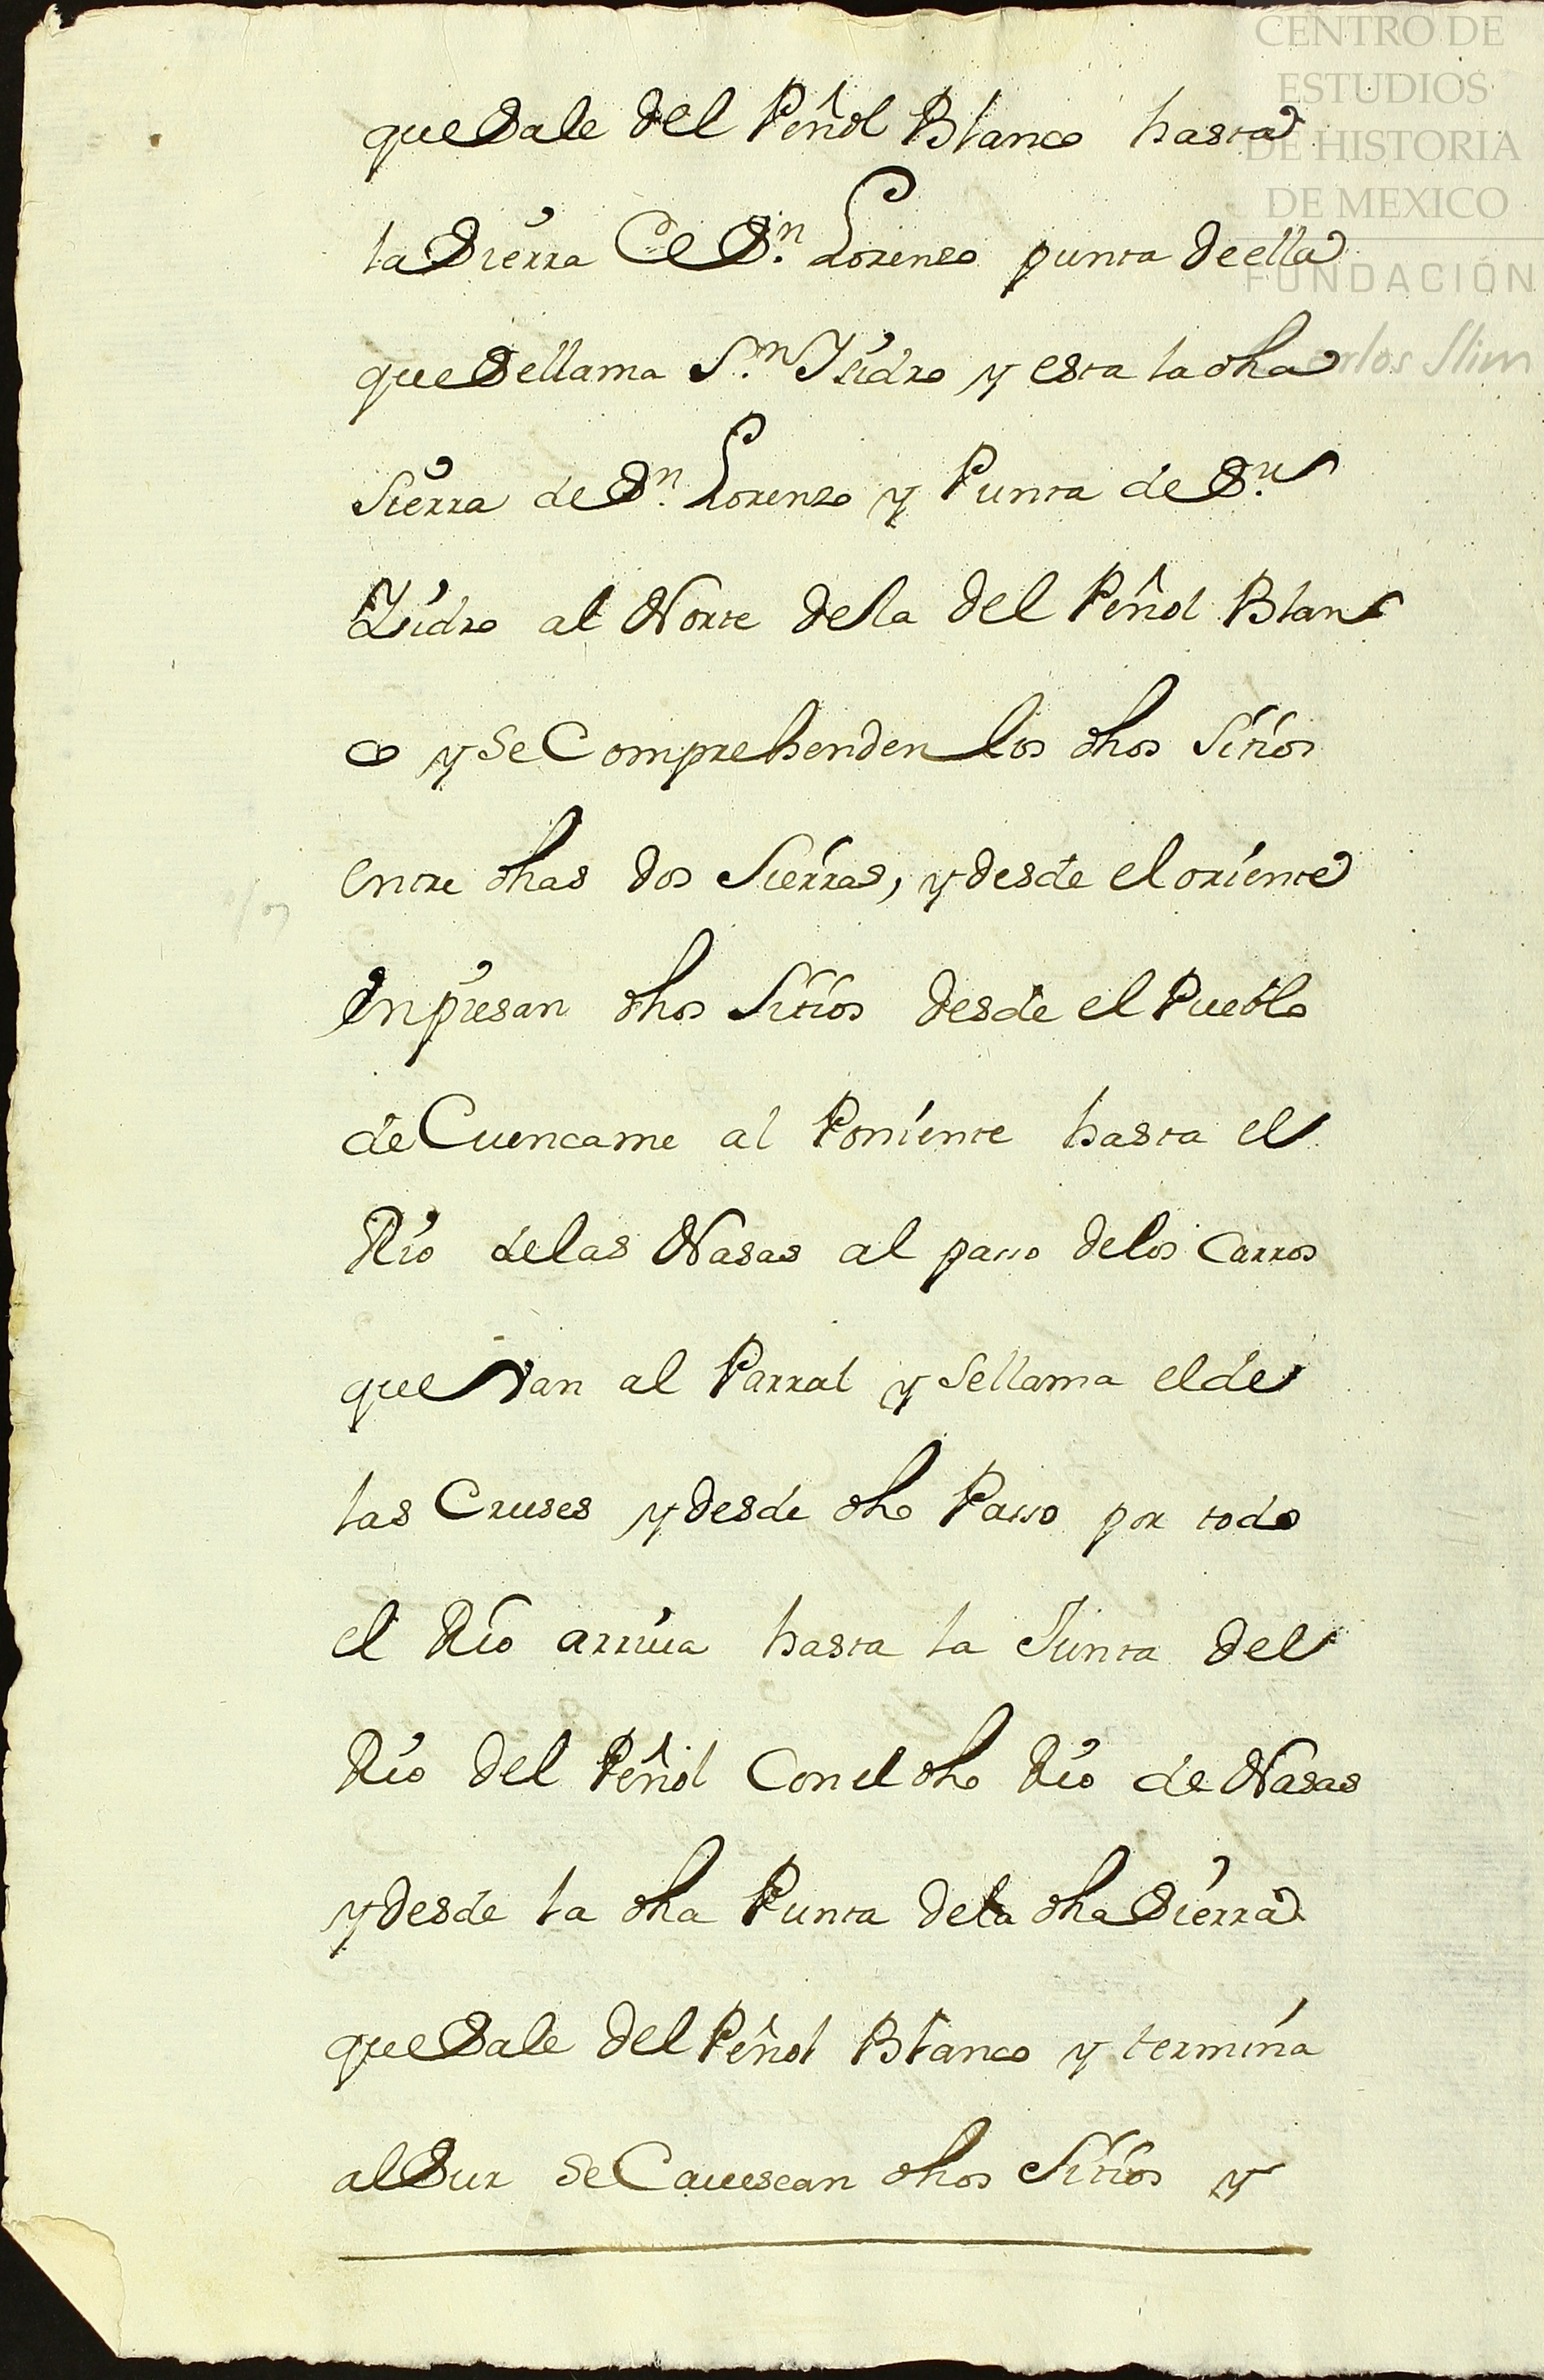 CENTRO DE
ESTUDIOS
DE HISTORIA
DE MEXICO
FUNDACIÓN
Carlos Slim
que Sale del Peñol Blanco hasta
la Sierra de S.n Lorenso punta de ella
que Se llama S.n Isidro y esta la dha
Sierra de S.n Lorenso y Punta de S.n
Isidro al Norte de la del Peñol Blan
co y Se Comprehenden los dhos Sitios
entre dhas dos Sierras, y desde el oriente
Enpiesan dhos Sitios desde el Pueblo
de Cuencame al Poniente hasta el
Rio de las Nasas al passo de los Carros
que van al Parral y Se llama el de
las Cruses y desde dho Passo por todo
el Rio arriua hasta la Junta del
Rio del Peñol Con el dho Rio de Nasas
y desde la dha Punta de la dha Sierra
que Sale del Peñol Blanco y termina
al Sur Se Cauesean dhos Sitios y